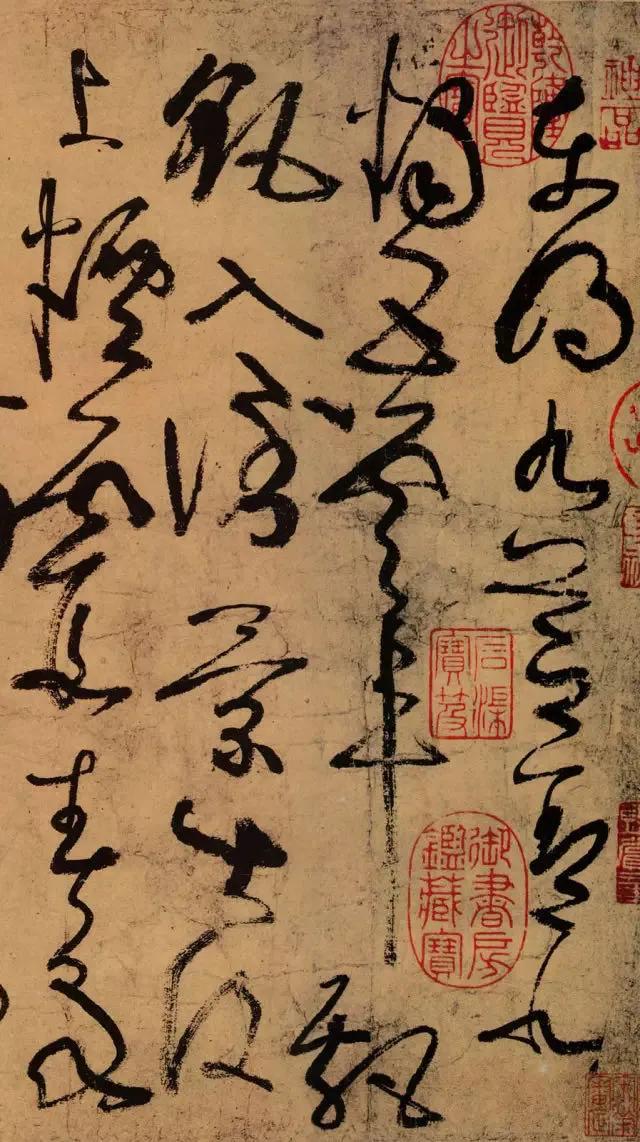 東明九芝盖北
燭五雲車飄
飖入倒景出没
上煙霞春泉
乾隆御覽之寶
神品
石渠寶笈
御書房鑑藏寶